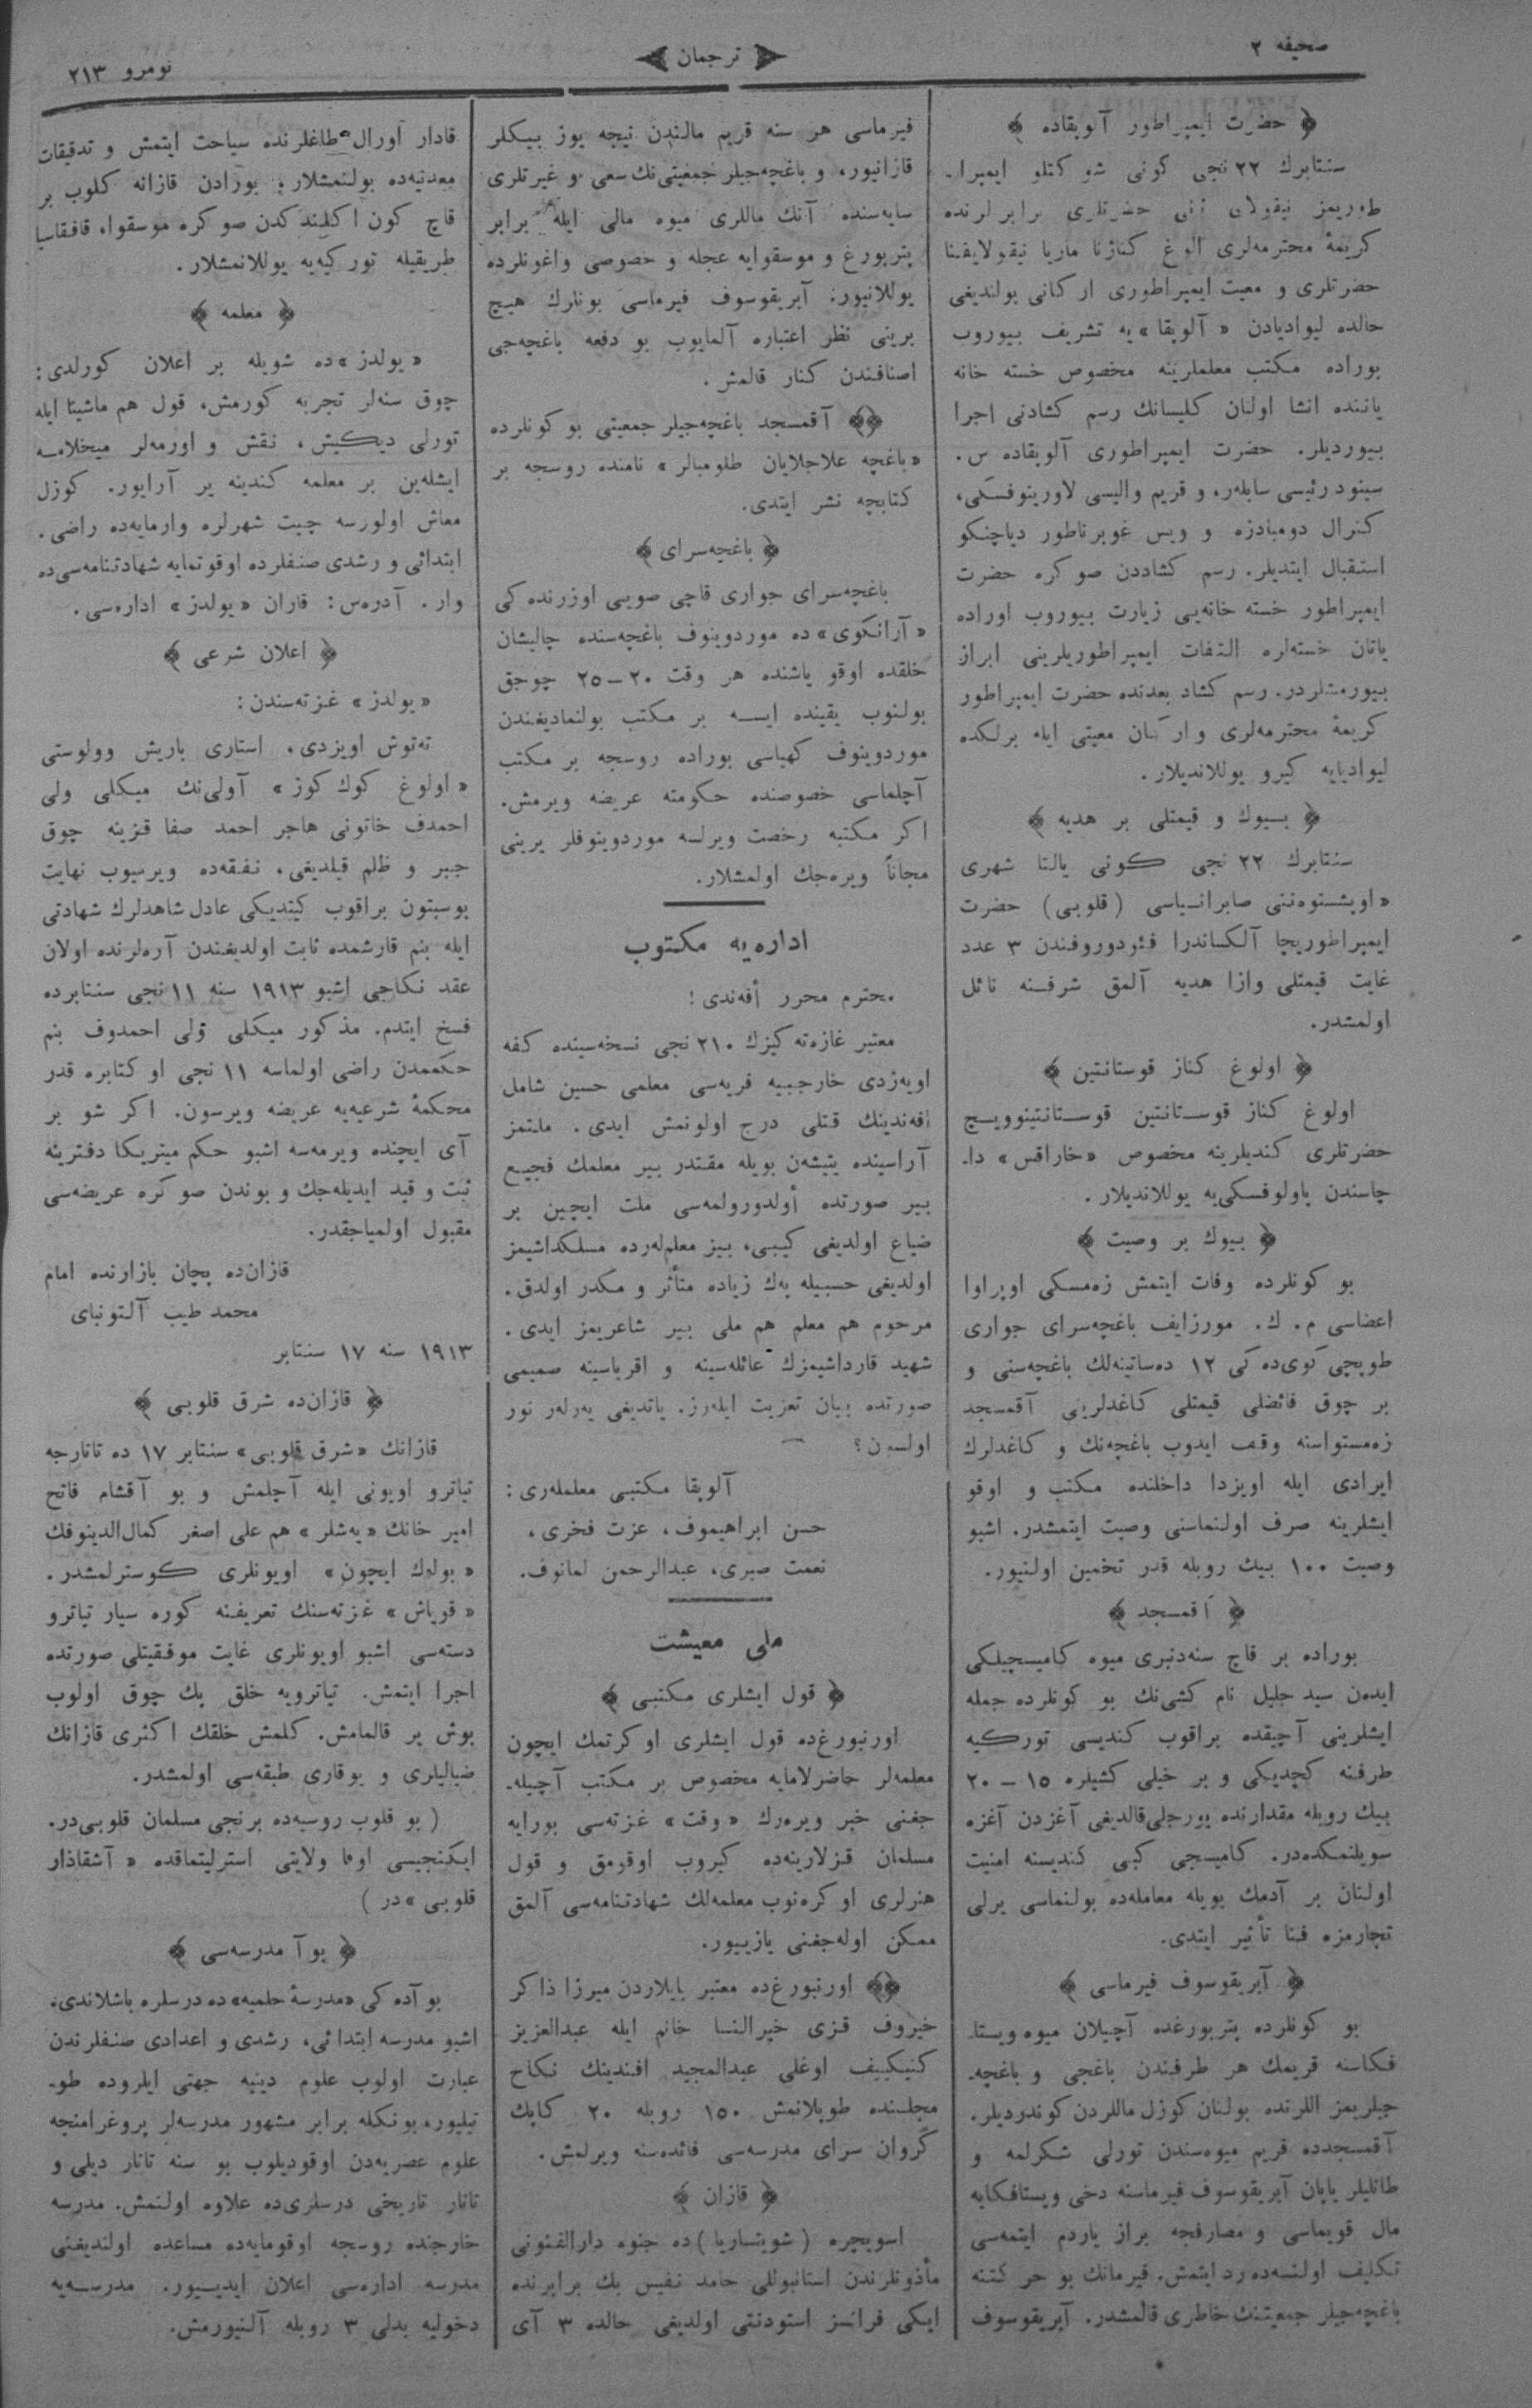 صحیفه ٢
ترجمان
نومرو ٢١٣
حضرت ایمپراطور آلوبقاده
سنتابرك ٢٢ نجی كونی شوكتلو ایمپرا-
طوریمز نیقولای ثانی حضرتلری برابرلرنده
كریمهٔ محترمه‌لری الوغ كناژنا ماریا نیقولایفنا
حضرتلری و معیت ایمپراطوری اركانی بولندیغی
حالده لیوادیادن «آلوبقا»یه تشریف بیوروب
بوراده مكتب معلملرینه مخصوص خسته خانه
یاننده انشا اولنان كلیسانك رسم كشادنی اجرا
بیوردیلر. حضرت ایمپراطوری آلوبقاده س.
سینود رئیسی سابلەر، و قریم والیسی لاورینوفسكی،
كنرال دومبادزه و ویس غوبرناطور دیاچنكو
استقبال ایتدیلر. رسم كشاددن صوكره حضرت
ایمپراطور خسته خانه‌یی زیارت بیوروب اوراده
یاتان خسته‌لره التفات ایمپراطوریلرینی ابراز
بیورمشلردر. رسم كشاد بعدنده حضرت ایمپراطور
كریمهٔ محترمه‌لری و اركان معیتی ایله برلكده
لیوادیایه كیرو یوللاندیلار.
بیوك و قیمتلی بر هدیه
سنتابرك ٢٢ نجی كونی یالتا شهری
«اوبشستوه‌ننی صابرانیاسی (قلوبی) حضرت
ایمپراطوریچا آلكساندرا فئودوروفندن ٣ عدد
غایت قیمتلی وازا هدیه آلمق شرفنه نائل
اولمشدر.
اولوغ كناز قوستانتین
اولوغ كناز قوستانتین قوستانتینوویچ
حضرتلری كندیلرینه مخصوص «خاراقس» دا-
چاسندن پاولوفسكی‌یه یوللاندیلار.
بیوك بر وصیت
بو كونلرده وفات ایتمش زەمسكی اوپراوا
اعضاسی م. ك. مورزایف باغچه‌سرای جواری
طوپچی كوی‌ده كی ١٢ ده‌ساتینه‌لك باغچه‌سنی و
بر چوق فائضلی قیمتلی كاغدلرینی آقمسجد
زەمستواسنه وقف ایدوب باغچه‌نك و كاغدلرك
ایرادی ایله اویزدا داخلنده مكتب و اوقو
ایشلرینه صرف اولنماسنی وصیت ایتمشدر. اشبو
وصیت ١٠٠ بیك روبله قدر تخمین اولنیور.
آقمسجد
بوراده بر قاچ سنه‌دنبری میوه كامیسچیلكی
ایدەن سید جلیل نام كشی‌نك بو كونلرده جمله
ایشلرینی آچیقده براقوب كندیسی توركیه
طرفنه كچدیكی و بر خیلی كشیلره ١٥ – ٢٠
بیك روبله مقدارنده بورجلی قالدیغی آغزدن آغزه
سویلنمكده‌در. كامیسجی كبی كندیسنه امنیت
اولنان بر آدمك بویله معامله‌ده بولنماسی یرلی
تجارمزه فنا تأثیر ایتدی.
آبریقوسوف فیرماسی
بو كونلرده پتربورغده آچیلان میوه ویستا-
فكاسنه قریمك هر طرفندن باغجی و باغچه-
جیلریمز اللرنده بولنان كوزل ماللردن كوندردیلر.
آقمسجدده قریم میوه‌سندن تورلی شكرلمه و
طاتلیلر یاپان آبریقوسوف فیرماسنه دخی ویستافكایه
مال قویماسی و مصارفجه براز یاردم ایتمه‌سی
تكلیف اولنسه‌ده رد ایتمش. فیرمانك بو حركتنه
باغچه‌جیلر جمعیتنك خاطری قالمشدر. آبریقوسوف
فیرماسی هر سنه قریم مالندن نیچه یوز بیكلر
قازانیور، و باغچه‌جیلر جمعیتی‌نك سعی و غیرتلری
سایه‌سنده آنك ماللری میوه مالی ایله برابر
پتربورغ و موسقوایه عجله و خصوصی واغونلرده
یوللانیور: آبریقوسوف فیرماسی بونارك هیچ
برینی نظر اعتباره آلمایوب بو دفعه باغچه‌جی
اصنافندن كنار قالمش.
آقمسجد باغچه‌جیلر جمعیتی بو كونلرده
«باغچه علاجلایان طلومبالر» نامنده روسجه بر
كتابچه نشر ایتدی.
باغچه‌سرای
باغچه‌سرای جواری قاچی صویی اوزرنده كی
«آرانكوی» ده موردوینوف باغچه‌سنده چالیشان
خلقده اوقو یاشنده هر وقت ٢٠ – ٢٥ چوجق
بولنوب یقینده ایسه بر مكتب بولنمادیغندن
موردوینوف كهیاسی بوراده روسجه بر مكتب
آچلماسی خصوصنده حكومته عریضه ویرمش.
اكر مكتبه رخصت ویرلسه موردوینوفلر یرینی
مجاناً ویره‌جك اولمشلار.
اداره‌یه مكتوب
محترم محرر أفه‌ندی!
معتبر غازه‌ته كیزك ٢١٠ نجی نسخه‌سینده كفه
اویه‌زدی خارجیبیه قریه‌سی معلمی حسین شامل
افه‌ندینك قتلی درج اولونمش ایدی. ملتمز
آراسینده یتیشەن بویله مقتدر بیر معلمك فجیع
بیر صورتده أولدورولمه‌سی ملت ایچین بر
ضیاع اولدیغی كیبی، بیز معلم‌له‌رده مسلكداشیمز
اولدیغی حسبیله پەك زیاده متأثر و مكدر اولدق.
مرحوم هم معلم هم ملی بیر شاعریمز ایدی.
شهید قارداشیمزك عائله‌سینه و اقرباسینه صمیمی
صورتده بیان تعزیت ایلەرز. یاتدیغی یەرلەر نور
اولسون؟
آلوبقا مكتبی معلمله‌ری:
حسن ابراهیموف، عزت فخری،
نعمت صبری، عبدالرحمن لمانوف.
ملی معیشت
قول ایشلری مكتبی
اورنبورغ‌ده قول ایشلری اوكرتمك ایچون
معلمه‌لر حاضرلامایه مخصوص بر مكتب آچیله-
جغنی خبر ویره‌رك «وقت» غزته‌سی بورایه
مسلمان قزلارینه‌ده كیروب اوقومق و قول
هنرلری اوكره‌نوب معلمه‌لك شهادتنامه‌سی آلمق
ممكن اوله‌جغنی یازییور.
اورنبورغ‌ده معتبر بایلاردن میرزا ذاكر
خیروف قزی خیرالنسا خانم ایله عبدالعزیز
كنیكییف اوغلی عبدالمجید افندینك نكاح
مجلسنده طوپلانمش ١٥٠ روبله ٢٠ كاپك
كروان سرای مدرسه‌سی فائده‌سنه ویرلمش.
قازان
اسویچره (شویتساریا) ده جنوه دارالفنونی
مأذونلرندن استانبوللی حامد نفیس بك برابرنده
ایكی فرانسز استودنتی اولدیغی حالده ٣ آی
قادار اورال طاغلرنده سیاحت ایتمش و تدقیقات
معدنیه‌ده بولنمشلار. بورادن قازانه كلوب بر
قاچ كون اكلندكدن صوكره موسقوا، قافقاسیا
طریقیله توركیه‌یه یوللانمشلار.
معلمه
«یولدز»ده شویله بر اعلان كورلدی:
چوق سنه‌لر تجربه كورمش، قول هم ماشینا ایله
تورلی دیكیش، نقش و اورمه‌لر میخلامه
ایشله‌ین بر معلمه كندینه یر آرایور. كوزل
معاش اولورسه چیت شهرلره وارمایه‌ده راضی.
ابتدائی و رشدی صنفلرده اوقوتمایه شهادتنامه‌سی‌ده
وار. آدرەس: قازان «یولدز» اداره‌سی.
اعلان شرعی
«یولدز» غزته‌سندن:
ته‌توش اویزدی، استاری باریش وولوستی
«اولوغ كوك كوز» آولی‌نك میكلی ولی
احمدف خاتونی هاجر احمد صفا قزینه چوق
جبر و ظلم قیلدیغی، نفقه‌ده ویرمیوب نهایت
بوسبتون براقوب كیتدیكی عادل شاهدلرك شهادتی
ایله بنم قارشمده ثابت اولدیغندن آره‌لرنده اولان
عقد نكاحی اشبو ١٩١٣ سنه ١١ نجی سنتابرده
فسخ ایتدم. مذكور میكلی ولی احمدوف بنم
حكممدن راضی اولماسه ١١ نجی اوكتابره قدر
محكمهٔ شرعیه‌یه عریضه ویرسون. اكر شو بر
آی ایچنده ویرمه‌سه اشبو حكم میتریكا دفترینه
ثبت و قید ایدیله‌جك و بوندن صوكره عریضه‌سی
مقبول اولمیاجقدر.
قازان‌ده پچان بازارنده امام
محمد طیب آلتونبای
١٩١٣ سنه ١٧ سنتابر
قازان‌ده شرق قلوبی
قازانك «شرق قلوبی» سنتابر ١٧ ده تاتارجه
تیاترو اویونی ایله آچلمش و بو آقشام فاتح
امیر خانك «یه‌شلر» هم علی اصغر كمال‌الدینوفك
«بولهك ایچون» اویونلری كوسترلمشدر.
«قویاش» غزته‌سنك تعریفنه كوره سیار تیاترو
دسته‌سی اشبو اویونلری غایت موفقیتلی صورتده
اجرا ایتمش. تیاترویه خلق پك چوق اولوب
بوش یر قالمامش. كلمش خلقك اكثری قازانك
ضیالیلری و یوقاری طبقه‌سی اولمشدر.
(بو قلوب روسیه‌ده برنجی مسلمان قلوبی‌در.
ایكنجیسی اوفا ولایتی استرلیتماقده «آشقاذار
قلوبی»در)
بوآ مدرسه‌سی
بوآده كی «مدرسهٔ حلمیه»ده درسلره باشلاندی.
اشبو مدرسه ابتدائی، رشدی و اعدادی صنفلرندن
عبارت اولوب علوم دینیه جهتی ایلروده طو-
تیلیور، بونكله برابر مشهور مدرسه‌لر پروغرامنجه
علوم عصریه‌دن اوقودیلوب بو سنه تاتار دیلی و
تاتار تاریخی درسلری‌ده علاوه اولنمش. مدرسه
خارجنده روسجه اوقومایه‌ده مساعده اولندیغنی
مدرسه اداره‌سی اعلان ایدییور. مدرسه‌یه
دخولیه بدلی ٣ روبله آلنیورمش.